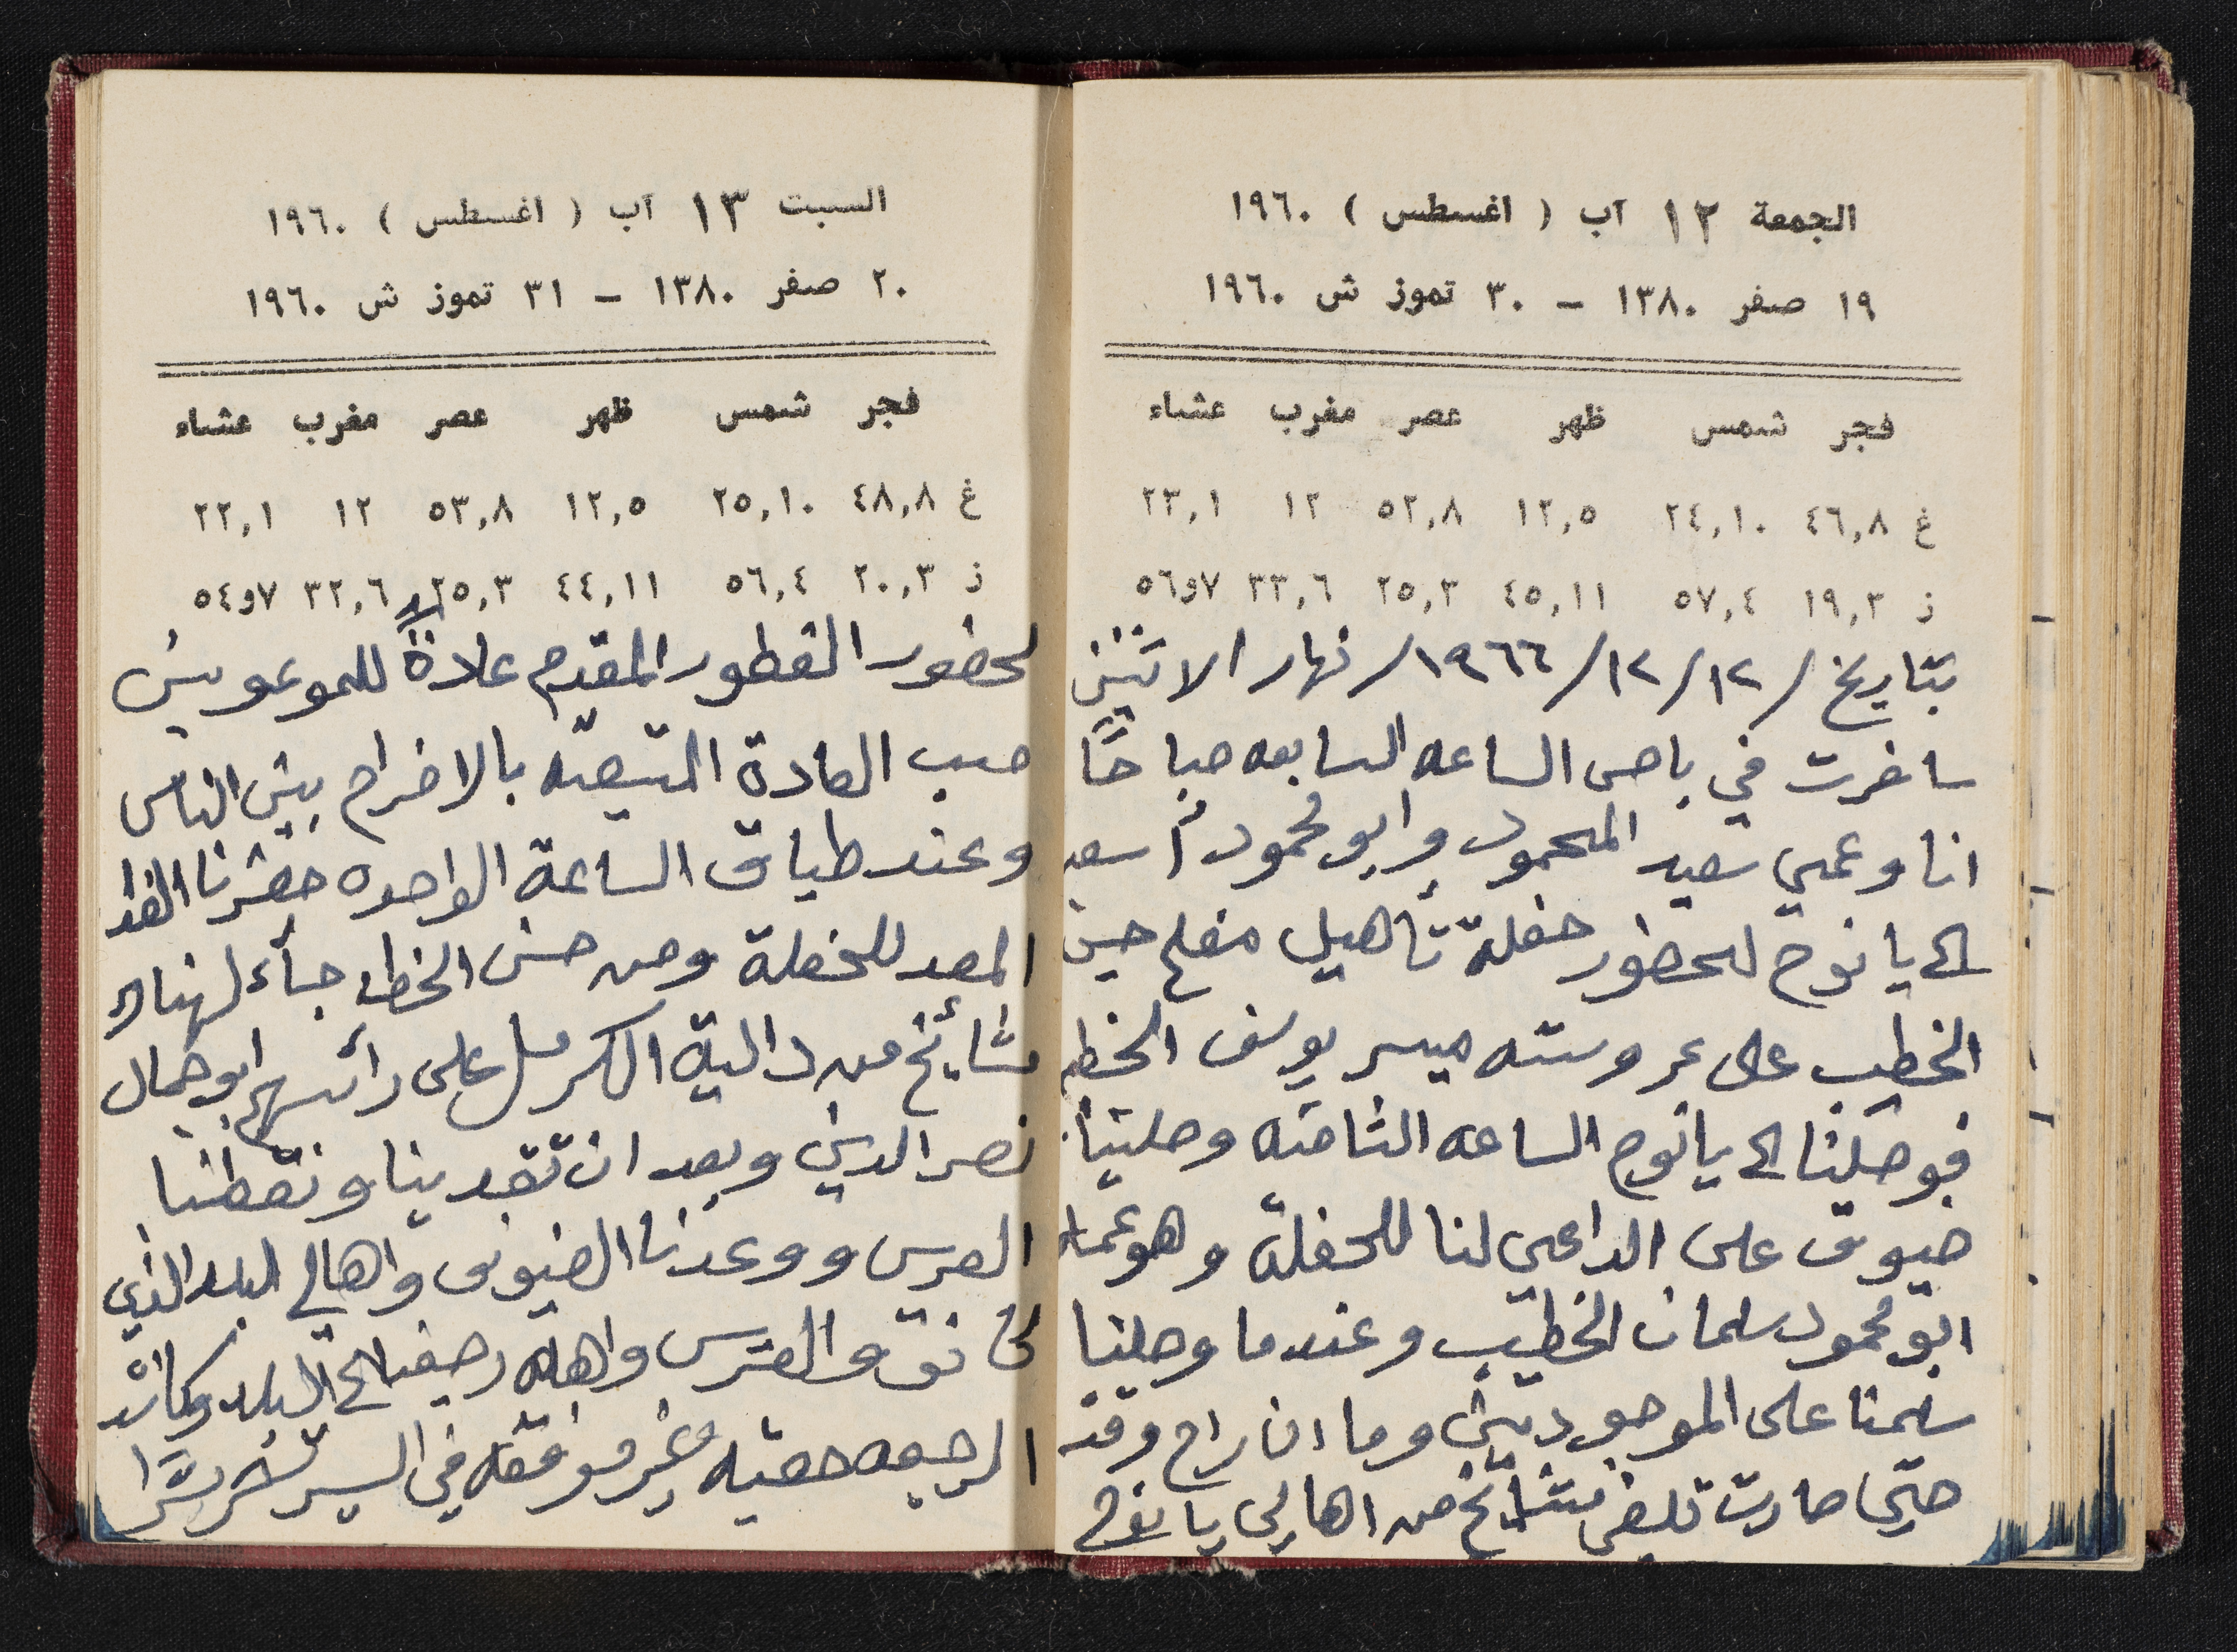 الجمعة ١٢ آب ( اغسطس ) ١٩٦٠
١٩ صفر ١٣٨٠ – ٣٠ تموز ش ١٩٦٠
فجر شمس ظهر عصر مغرب عشاء
غ ٤٦,٨ ٢٤,١٠ ١٢,٥ ٥٢,٨ ١٢ ٢٣,١
ز ١٩,٣ ٥٧,٤ ٤٥,١١ ٢٥,٣ ٣٣,٦ ٧و٥٦
بتاريخ /١٢/١٢/١٩٦٦/ نهار الاثنين
سافرت في باص الساعه السابعه صباحًا
انا وعمي سعيد المحمود وابو محمود أسعد
الى يانوح لحضور حفلة تأهيل مفلح حسين
الخطيب على عروسته ميسر يوسف الخطيب
فوصلنا الى يانوح الساعه الثامنه وصلينا
ضيوف على الداعي لنا للحفلة وهو عمه
ابو محمود سلمان الخطيب وعندما وصلنا
سلمنا على الموجودين وما ان راح وقت
حتى صارت تلفي مشائخ من اهالي يانوح
السبت ١٣ آب ( اغسطس ) ١٩٦٠
٢٠ صفر ١٣٨٠ – ٣١ تموز ش ١٩٦٠
فجر شمس ظهر عصر مغرب عشاء
غ ٤٨,٨ ٢٥,١٠ ١٢,٥ ٥٣,٨ ١٢ ٢٢,١
ز ٢٠,٣ ٥٦,٤ ٤٤,١١ ٢٥,٣ ٣٢,٦ ٧و٥٤
لحضور الفطور المقدم علاةً للموعوين
حسب العادة المتبعه بالافراح بين الناس
وعند طياق الساعة الواحده حضرنا الغدا
المعد للحفلة ومن حسن الحظ جاء لهناك
مشائخ من دالية الكرمل على رائسهم ابو جمال
نصر الدين وبعد ان تغدينا ونقطنا
العرس وودعنا الضيوف واهالي البلد الذي
والعرس واهله رجعنا الى البلد وكانت
الرجعه صعبه وغير موفقه في السير تقريبًا